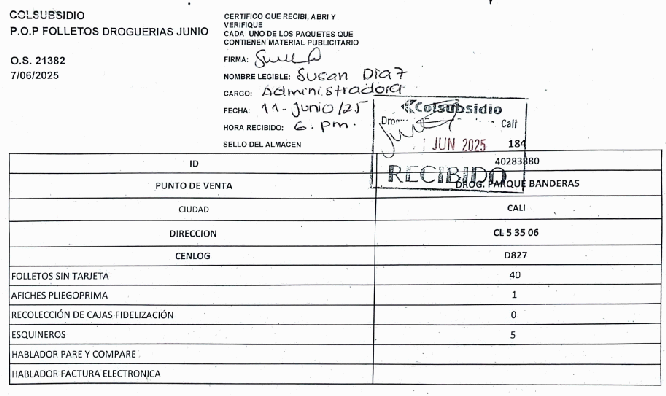 COLSUBSIDIO
P.O.P FOLLETOS DROGUERIAS JUNIO
O.S. 21382
7/06/2025
CERTIFICO QUE RECIBI, ABRI Y
VERIFIQUE
CADA UNO DE LOS PAQUETES QUE
CONTIENEN MATERIAL PUBLICITARIO
FIRMA:
NOMBRE LEGIBLE: Susan Diaz
CARGO: Administradora
FECHA: 11-Junio/25
HORA RECIBIDO: 6. pm.
SELLO DEL ALMACEN
Colsubsidio
Cali
JUN 2025 184
RECIBIDO
ID 40283880
PUNTO DE VENTA DROG. PARQUE BANDERAS
CIUDAD CALI
DIRECCION CL 5 35 06
CENLOG D827
FOLLETOS SIN TARJETA 40
AFICHES PLIEGOPRIMA 1
RECOLECCIÓN DE CAJAS-FIDELIZACIÓN 0
ESQUINEROS 5
HABLADOR PARE Y COMPARE
HABLADOR FACTURA ELECTRONICA